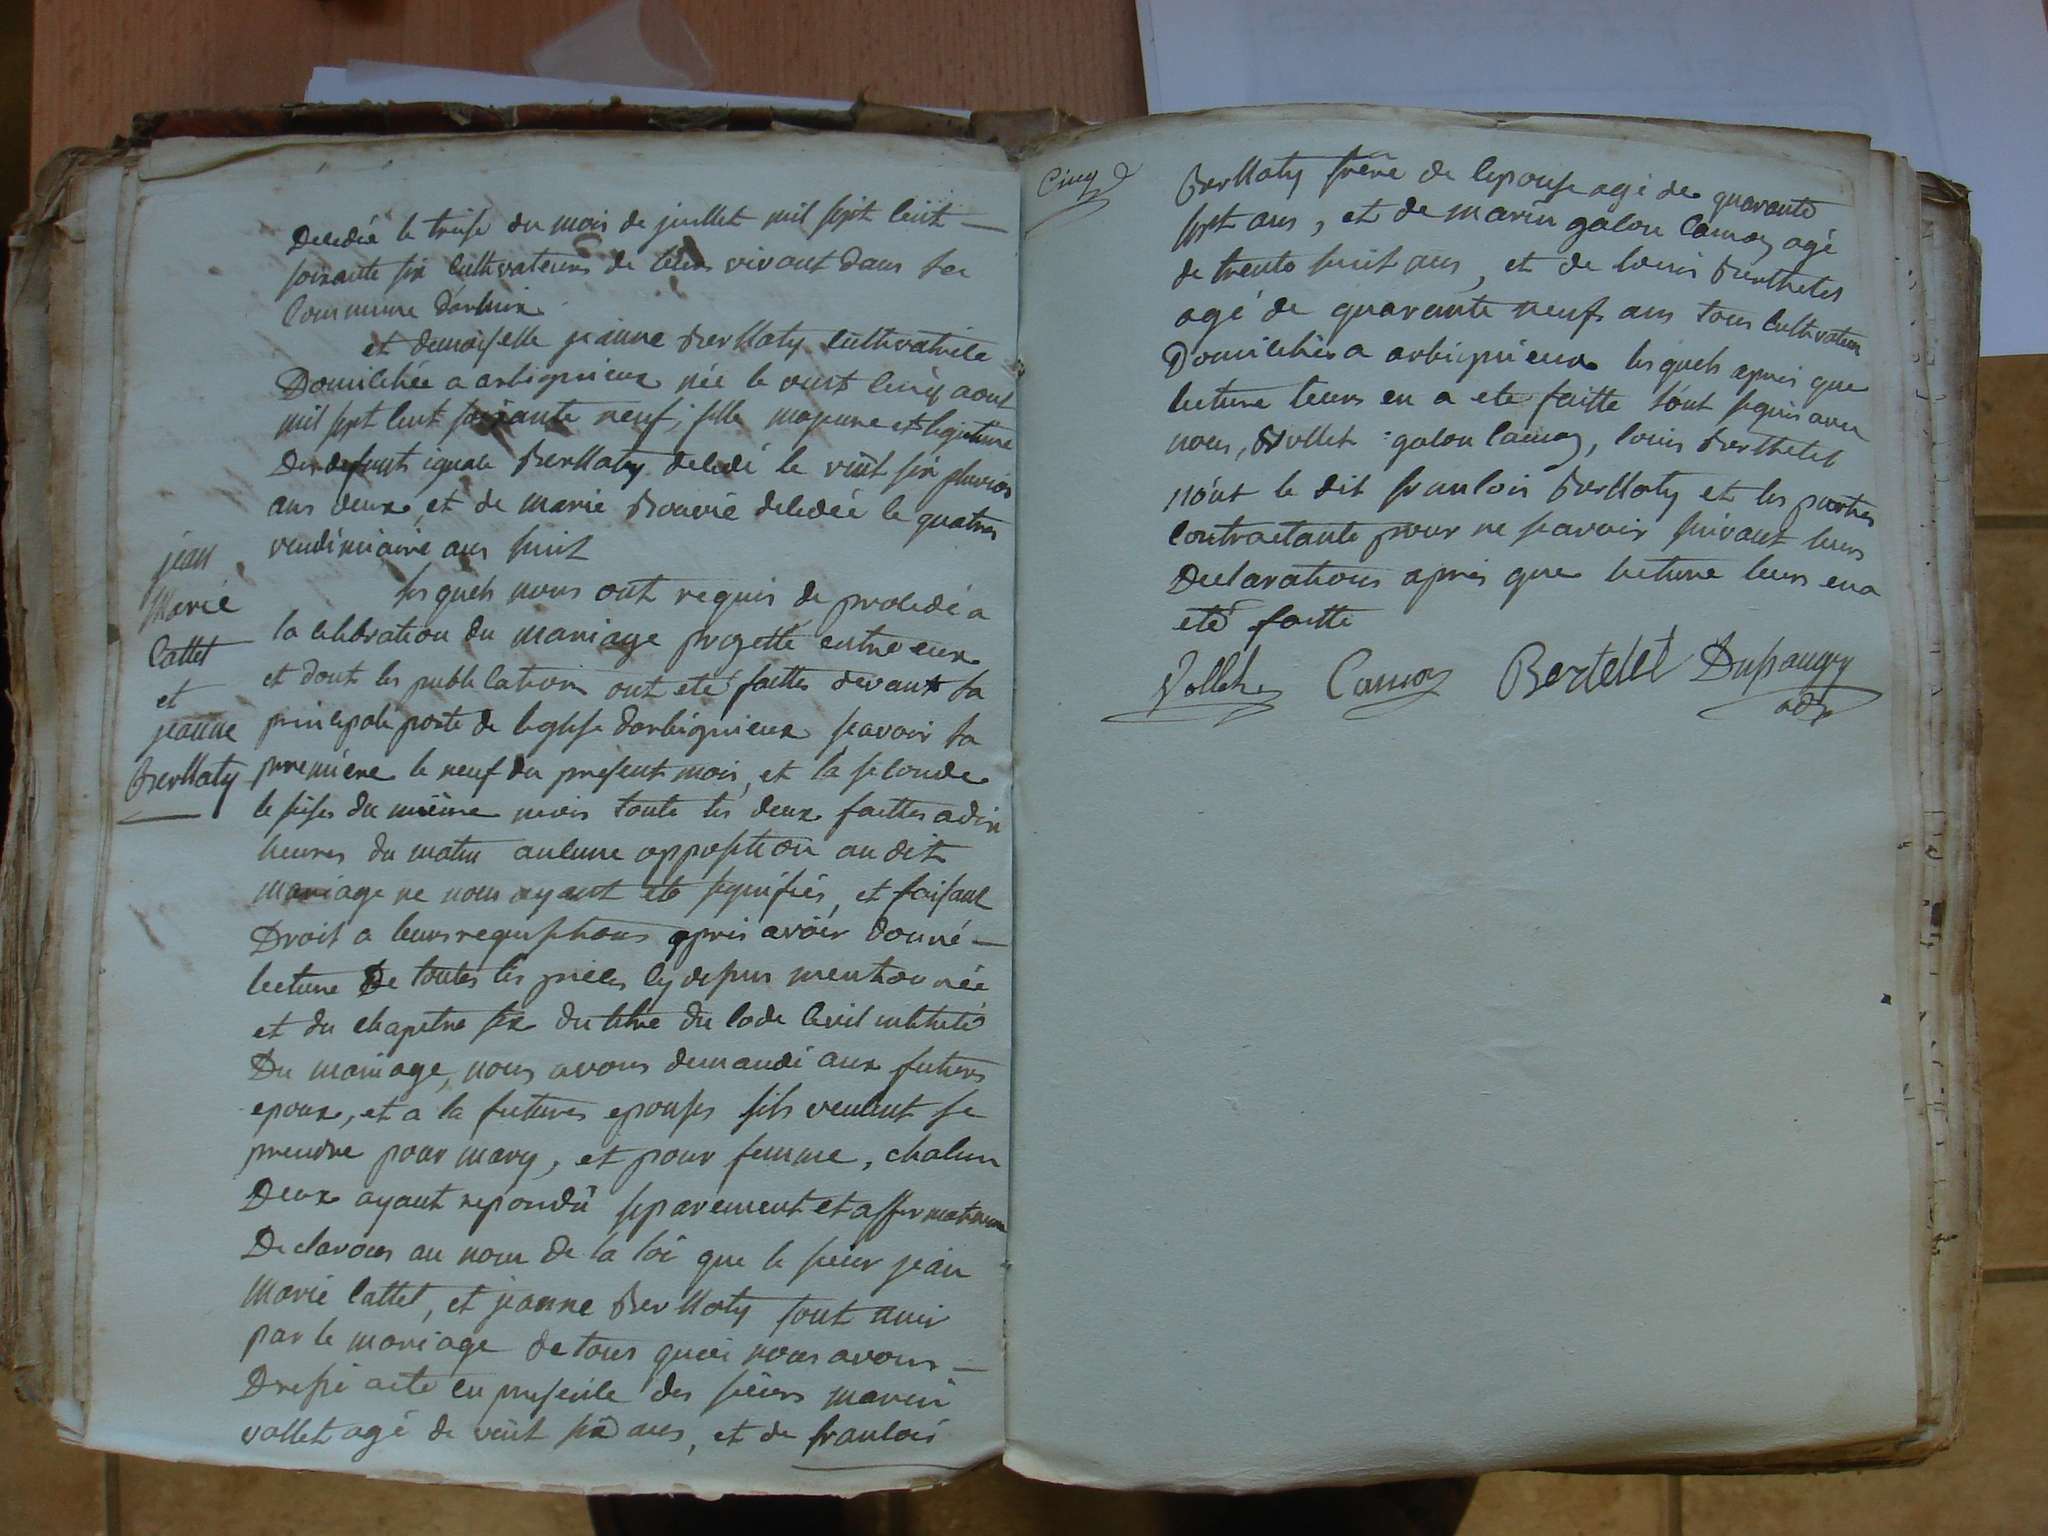 Decedée le treise du mois de juillet mil sept cent
soixante six cultivateurs de leurs vivant dans la
Commune
et demoiselle jeanne Berllioty cultivatrice
Domiciliée a arbignieux née le vint cinq aout
mil sept cent soixante neuf, fille majeure et legitime
Des defunts Berllioty decedé le vint six pluvios
ans deux, et de marie Bouvié decedée le quatres
vendimiaire ans huit
les quels nous ont requis de procedé a
la celebration du mariage progetté entre eux
et dont les publications ont eté faittes devant la
principale porte de leglise darbignieux scavoir la
premiere le neuf du present mois, et la seconde
le seises du même mois toute les deux faittes a dix
heures du matin aucune opposition au dit
mariage ne nous ayant eté signifiés, et faisant
Droit a leurs requisitions apres avoir donné
lecture De toutes les pieces cy depus mentionnée
et du chapitre six du titre du code civil intitulé
Du mariage, nous avons demandé aux futurs
epoux, et a la futures epouses sils veulent se
prendre pour mary, et pour femme, chacun
Deux ayant repondu separement et affirmativem
Declarons au nom de la loi que le sieur jean
marie Cattet, et jeanne Berllioty sont unir
par le mariage de tous quoi nous avons
Dressé acte en presence des sieurs marin
vollet agé de vint six ans, et de francois
jean
Marie
Cattet
et
jeanne
Berllioty
Cinq
Berllioty frère de lepouse agé de quarante
sept ans, et de marin galon Camoz agé
de trente huit ans, et de louis Berthetet
agé de quarante neuf ans tous cultivateur
Domiciliés a arbignieux les quels apres que
lecture leurs en a eté faitte sont signés avec
nous, Vollet galon Camoz, louis Berthetet
non le dit francois Berllioty et les parties
contractante pour ne scavoir suivant leurs
Declarations apres que lecture leurs en a
eté faitte
Vollet Camoz Bertetet Dupaugey
adj